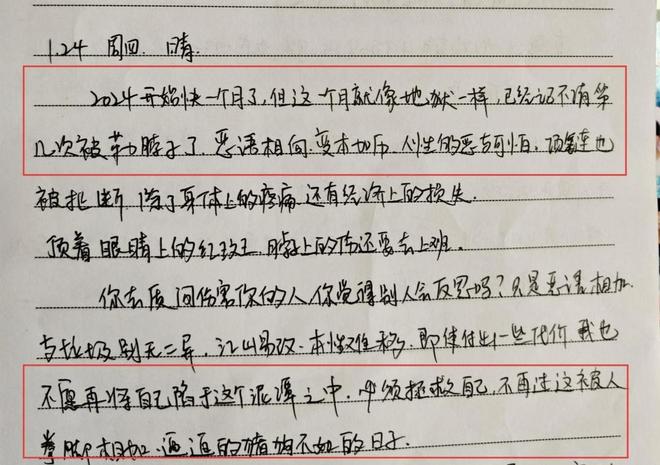 1.24 周四. 晴.
2024开始快一个月了,但这一个月就像地狱一样,已经记不清第
几次被勒脖子了 恶语相向.变本加厉 人性的恶与可怕,项链也
被扯断 除了身体上的疼痛 还有经济上的损失.
顶着眼睛上的红斑 脖子上的伤还要去上班.
你去质问伤害你的人 你觉得别人会反思吗?只是恶语相加
与垃圾别无二异,江山易改.本性难移,即使付出一些代价 我也
不愿再将自己陷于这个泥潭之中.必须拯救自己,不再过这被人
拳脚相加.逼迫的猪狗不如的日子.